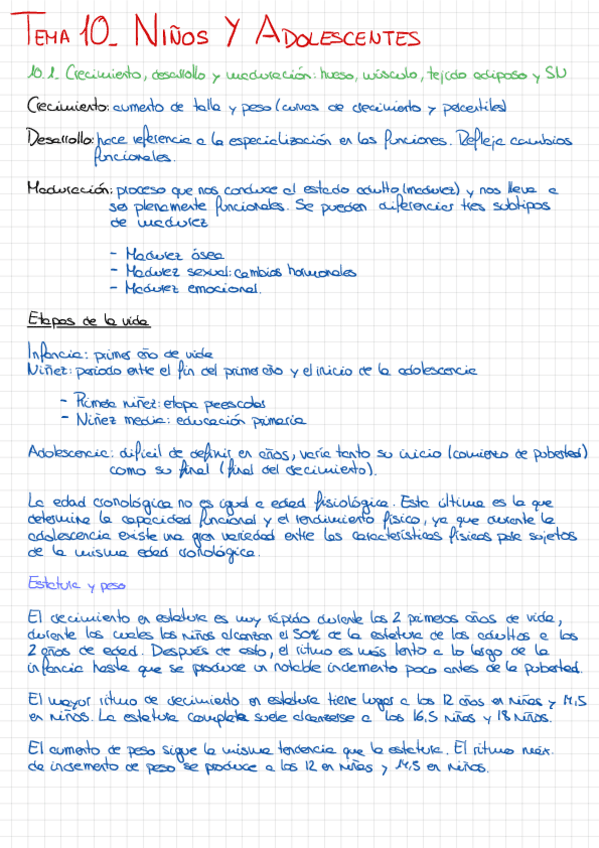 TEMA 10_ NIÑOS Y ADOLESCENTES
10.1_ Crecimiento, desarrollo y maduración: hueso, músculo, tejido adiposo y SN
Crecimiento: aumento de talla y peso (curvas de crecimiento y percentiles)
Desarrollo: hace referencia a la especialización en las funciones. Refleja cambios
funcionales.
Maduración: proceso que nos conduce al estado adulto (madurez) y nos lleva a
ser plenamente funcionales. Se pueden diferenciar tres subtipos
de madurez
- Madurez ósea
- Madurez sexual: cambios hormonales
- Madurez emocional.
Etapas de la vida
Infancia: primer año de vida
Niñez: periodo entre el fin del primer año y el inicio de la adolescencia
- Primera niñez: etapa preescolar
- Niñez media: educación primaria
Adolescencia: difícil de definir en años, varía tanto su inicio (comienzo de pubertad)
como su final (final del crecimiento).
La edad cronológica no es igual a edad fisiológica. Esta última es la que
determina la capacidad funcional y el rendimiento físico, ya que durante la
adolescencia existe una gran variedad entre las características físicas para sujetos
de la misma edad cronológica.
Estatura y peso
El crecimiento en estatura es muy rápido durante los 2 primeros años de vida,
durante los cuales los niños alcanzan el 50% de la estatura de los adultos a los
2 años de edad. Después de esto, el ritmo es más lento a lo largo de la
infancia hasta que se produce un notable incremento poco antes de la pubertad.
El mayor ritmo de crecimiento en estatura tiene lugar a los 12 años en niñas y 14,5
en niños. La estatura completa suele alcanzarse a los 16,5 niñas y 18 niños.
El aumento de peso sigue la misma tendencia que la estatura. El ritmo máx.
de incremento de peso se produce a los 12 en niñas y 14,5 en niños.